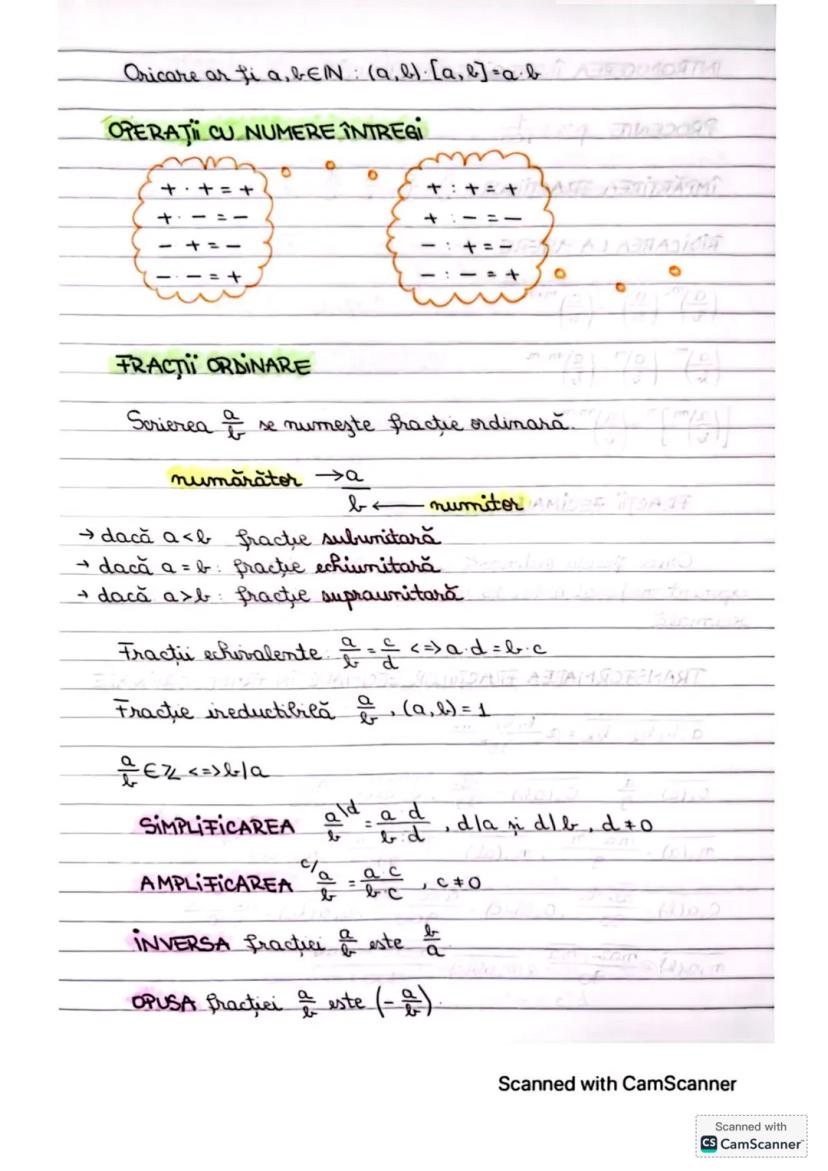 Oricare ar fi a, b ∈ ℕ : (a, b) · [a, b] = a · b
OPERAȚII CU NUMERE ÎNTREGI
+ · + = +
+ · − = −
− · + = −
− · − = +
+ : + = +
+ : − = −
− : + = −
− : − = +
FRACȚII ORDINARE
Scrierea a/b se numește fracție ordinară.
numărător → a
b ← numitor
→ dacă a < b fracție subunitară
→ dacă a = b : fracție echiunitară
→ dacă a > b : fracție supraunitară
Fracții echivalente: a/b = c/d <=> a · d = b · c
Fracție ireductibilă a/b , (a, b) = 1
a/b ∈ ℤ <=> b | a
SIMPLIFICAREA a/b \d = a : d / b : d , d | a și d | b, d ≠ 0
AMPLIFICAREA c/ a/b = a · c / b · c , c ≠ 0
INVERSA fracției a/b este b/a
OPUSA fracției a/b este (− a/b).
Scanned with CamScanner
Scanned with
CS CamScanner